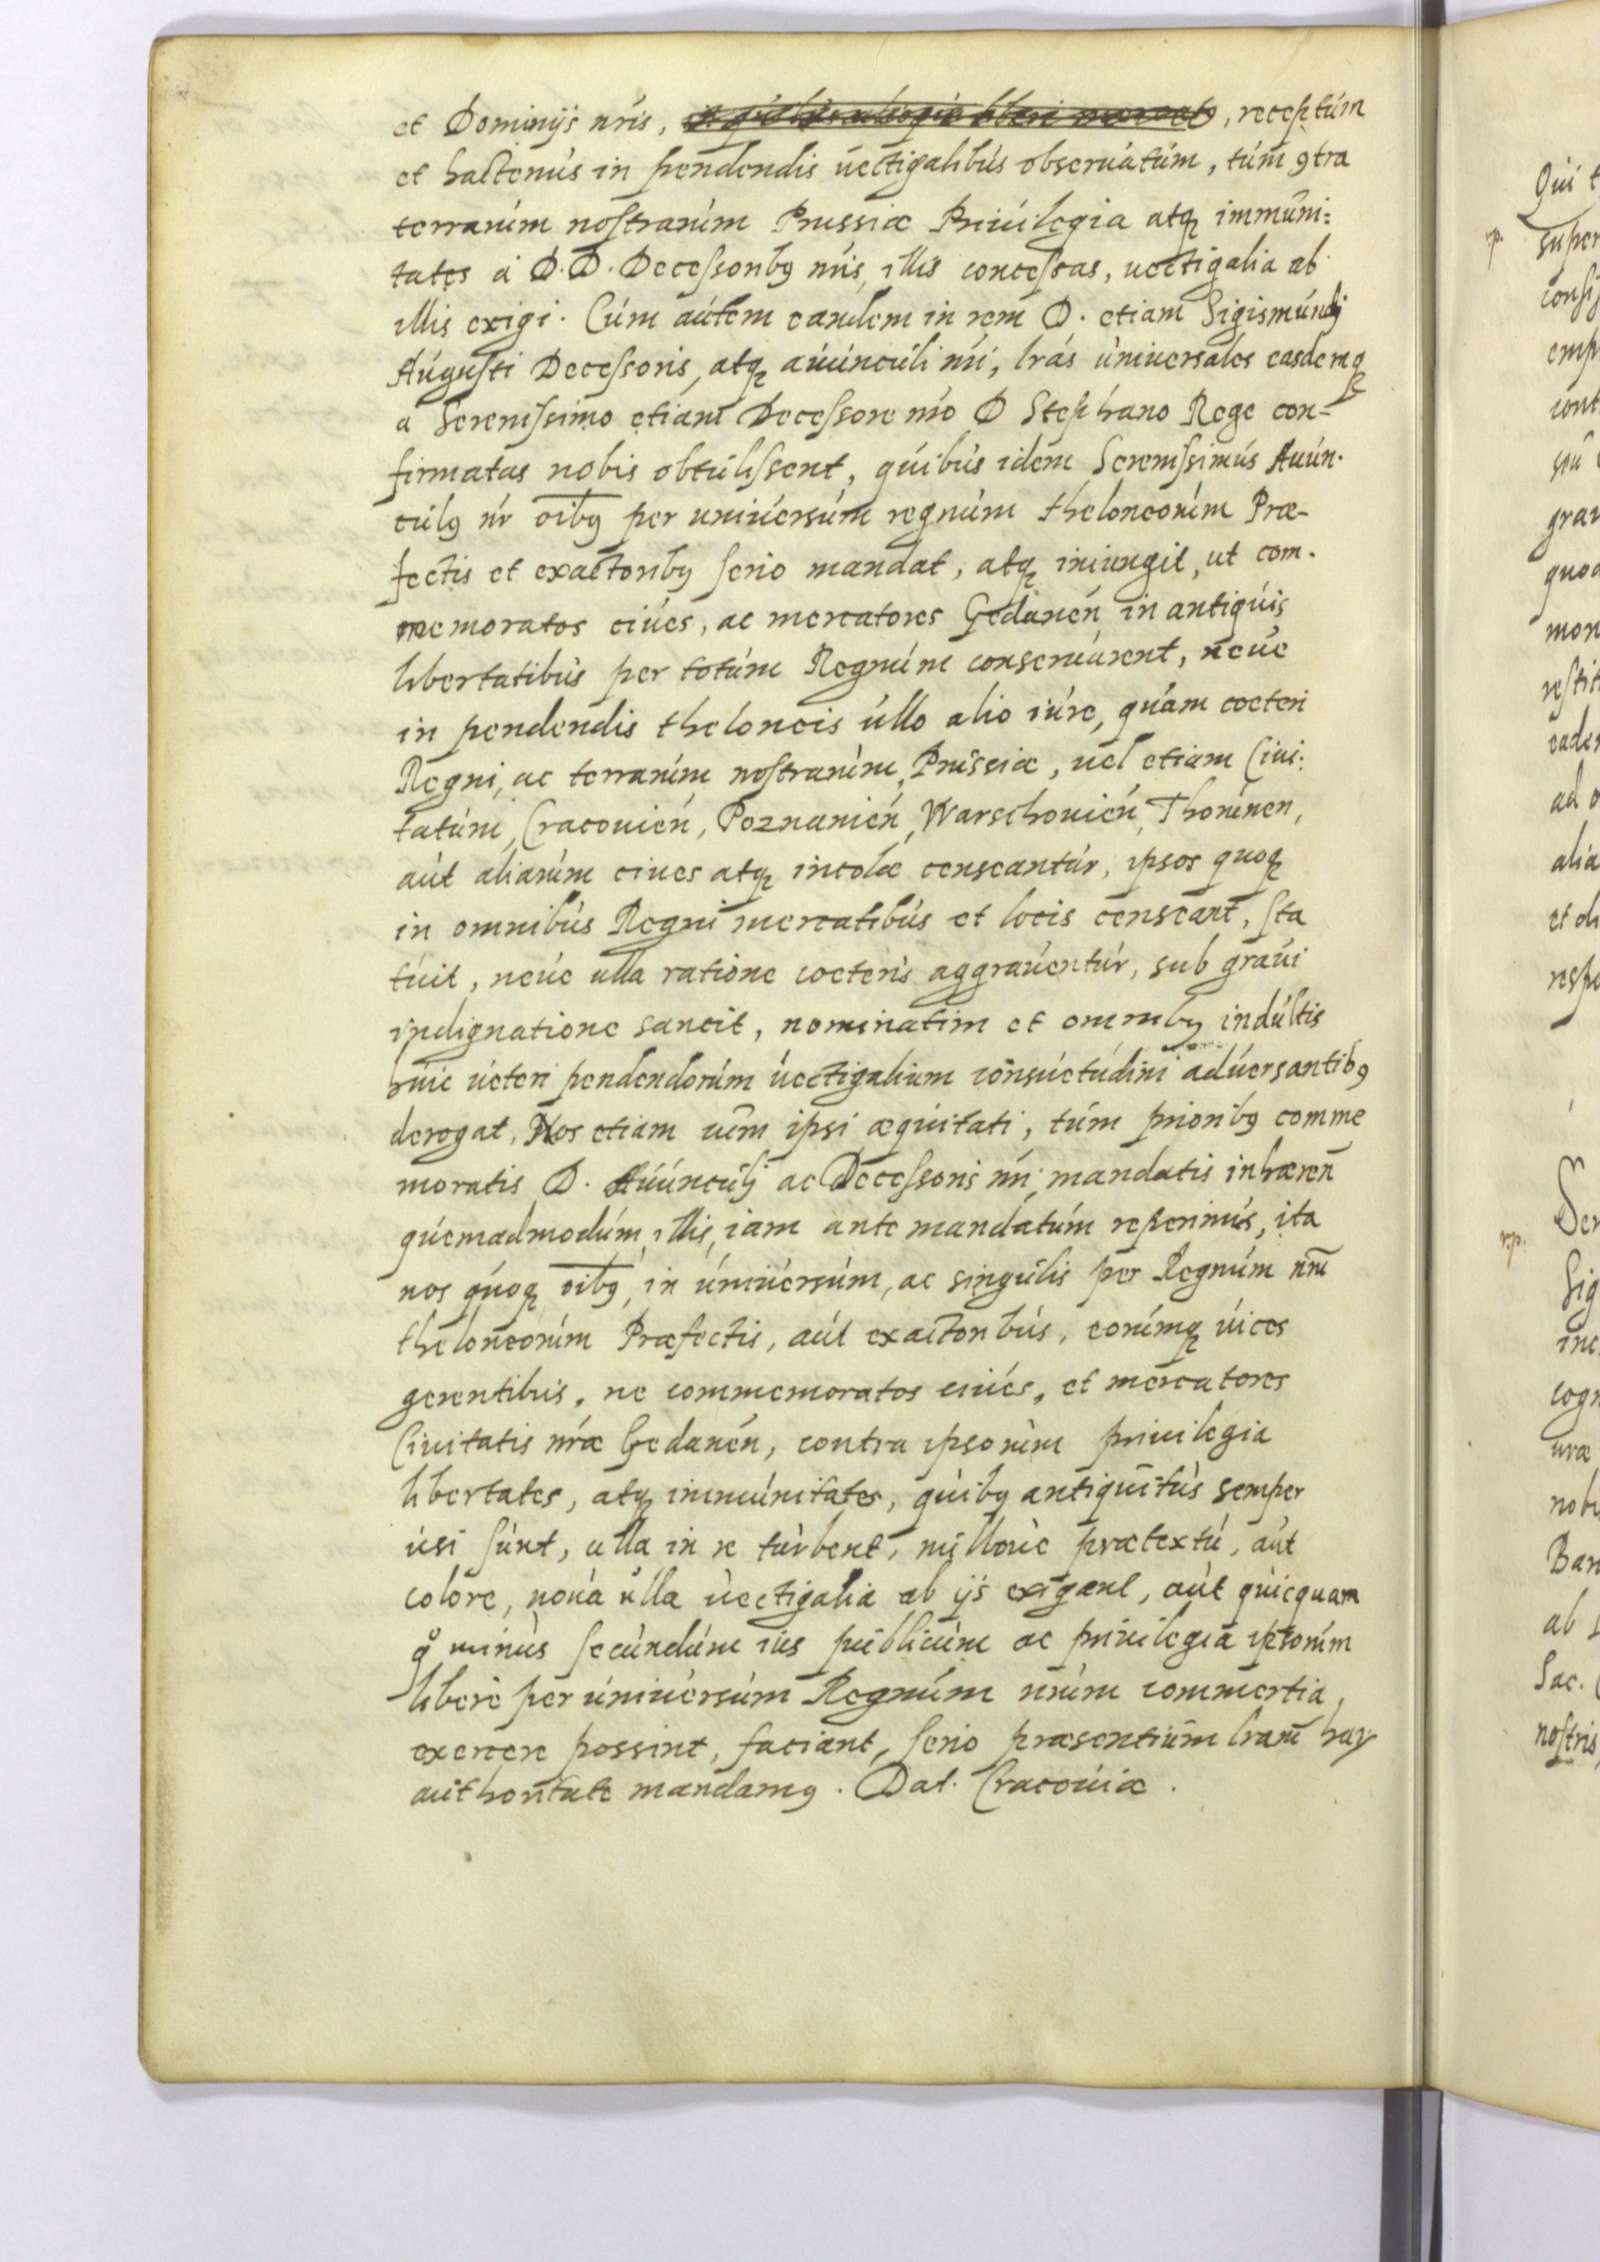 et Dominijs nris, , receptum
et hactenus in pendendis uectigalibus obseruatum, tum 9tra
terrarum nostrarum Prussiæ Priuilegia atq immuni:
tates à D. D. Decessorib9 nris, illis concessas, uectigalia ab
illis exigi. Cùm autem eandem in rem D. etiam Sigismundj
Augusti Decessoris, atq auunculi nri, lras uniuersales easdemq
a Serenissimo etiam Decessore nro D Stephano Rege con-
firmatas nobis obtulissent, quibus idem Serenissimus Auun-
cul9 nr oib9 per uniuersum regnum theloneorum Præ-
fectis et exactorib9 serio mandat, atq iniungit, ut com-
memoratos ciues, ac mercatores Gedanen in antiquis
libertatibus per totum Regnum conseruarent, neue
in pendendis theloneis ullo alio iure, quam cœteri
Regni, ac terrarum nostrarum, Prussiæ, uel etiam Ciui:
tatum, Cracouien, Poznanien, Warschouien, Thorunen,
aut aliarum ciues atq incolæ censeantur, ipsos quoq
in omnibus Regni mercatibus et locis censeant, sta
tuit, neue ulla ratione cœteris aggrauentur, sub graui
indignatione sancit, nominatim et omnib9 indultis
huic ueteri pendendorum uectigalium consuetudini aduersantib9
derogat, Nos etiam cum ipsi æquitati, tum priorib9 comme
moratis D. Auunculj ac Decessoris nri mandatis inhæren
quemadmodum, illis, iam ante mandatum reperimus, ita
nos quoq oib9, in uniuersum, ac singulis per Regnum nrm
theloneorum Præfectis, aut exactoribus, eorumq uices
gerentibus, ne commemoratos ciues, et mercatores
Ciuitatis nræ Gedanen, contra ipsorum priuilegia
libertates, atq immunitates, quib9 antiquitus semper
usi sunt, ulla in re turbent, nulloue prætextu, aut
colore, noua ulla uectigalia ab ijs exigant, aut quicquam
qo minus secundum ius publicum ac priuilegia ipsorum
libere per uniuersum Regnum nrum commertia,
exercere possint, faciant, serio præsentium lrarum har
authoritate mandam9. Dat. Cracouiæ.